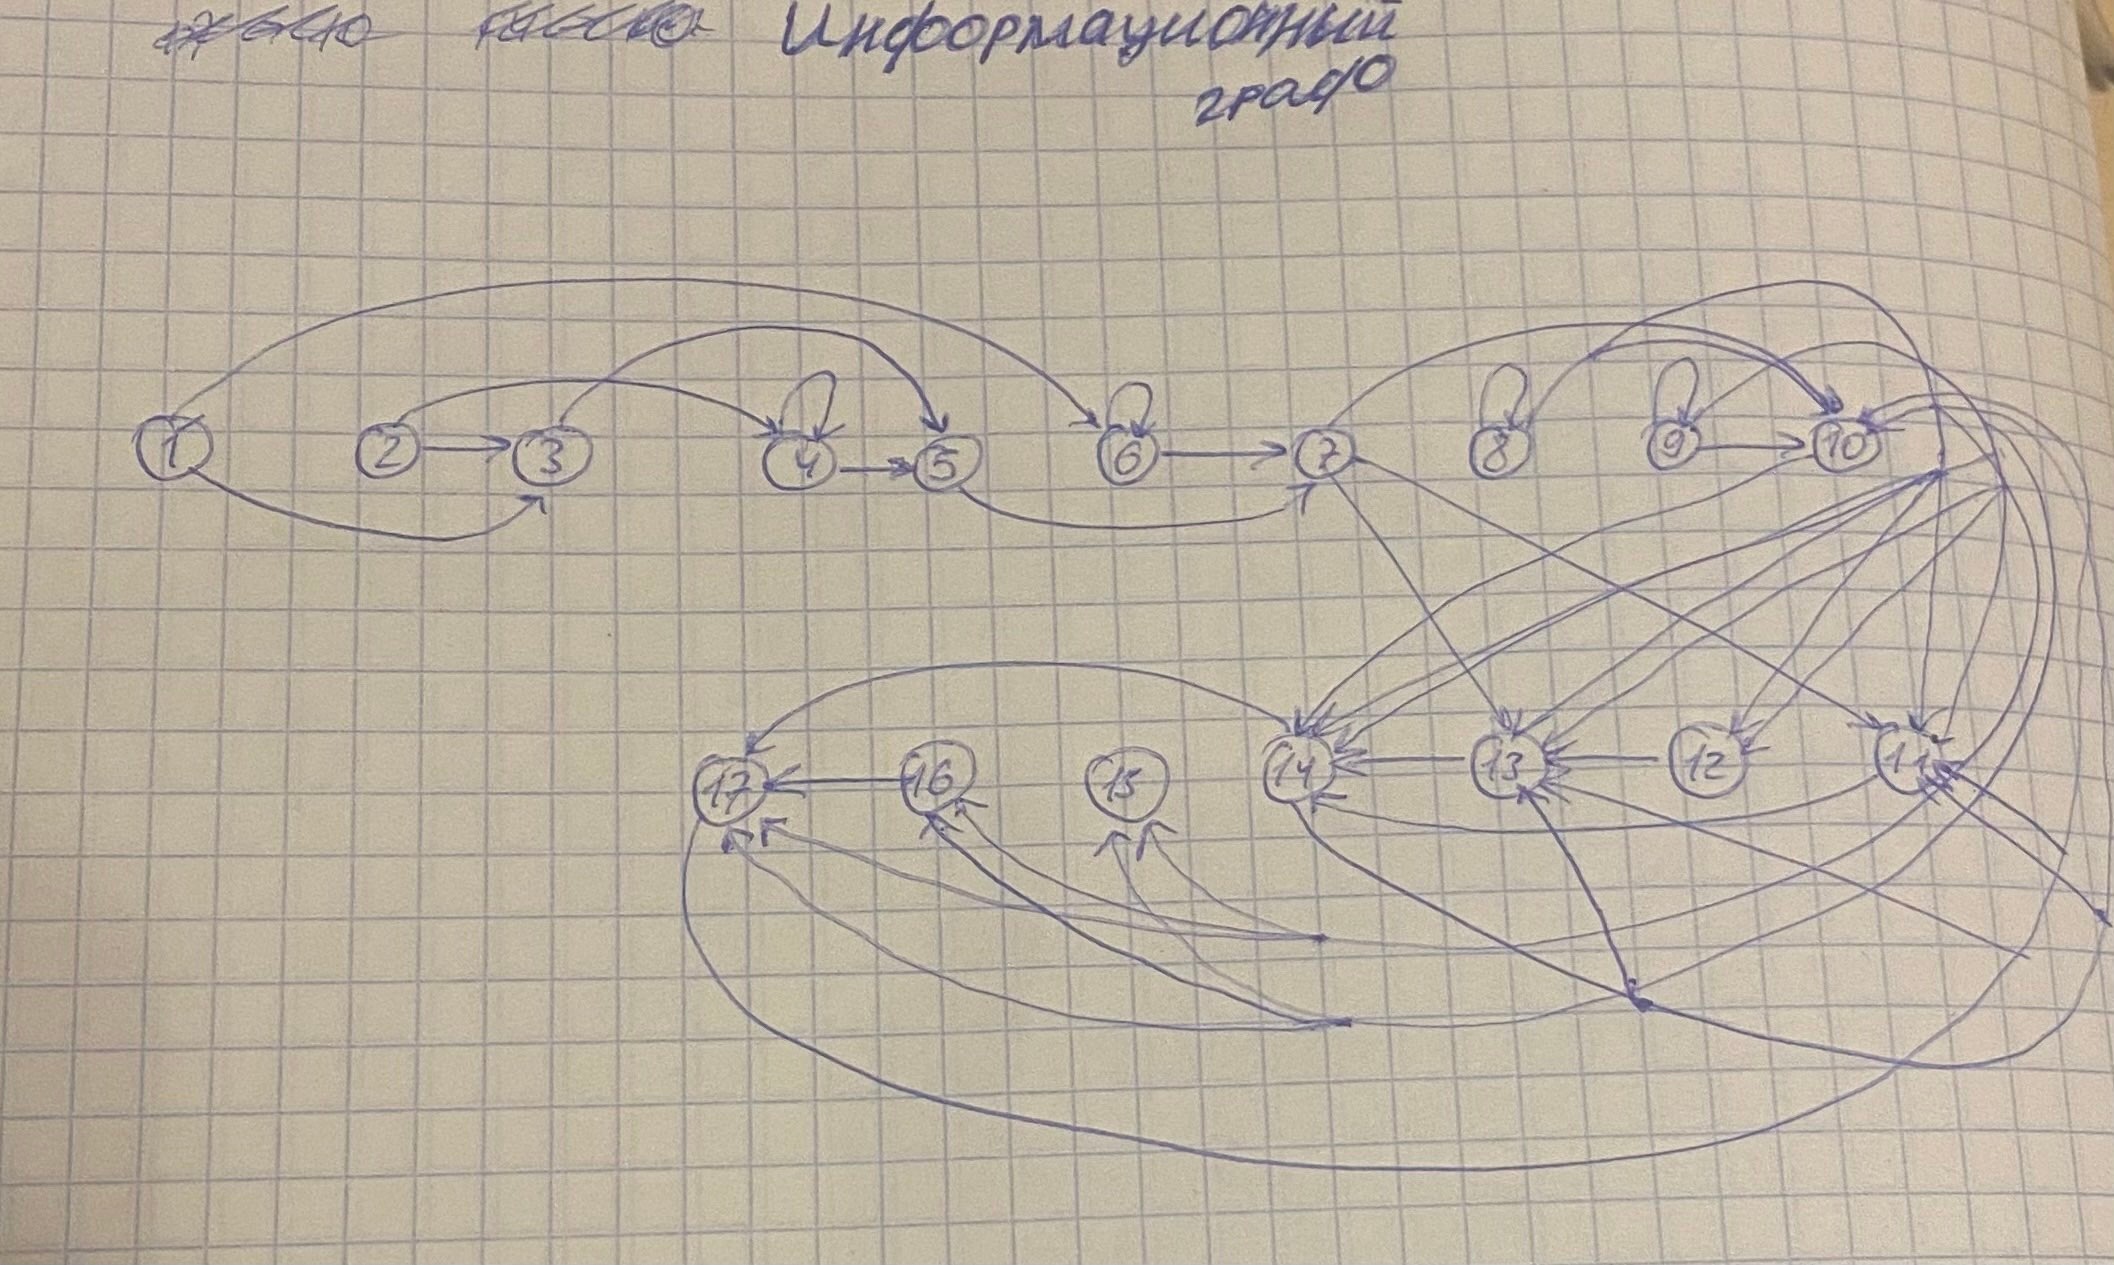 Информационный
граф
1 2 3 4 5 6 7 8 9 10
17 16 15 14 13 12 11